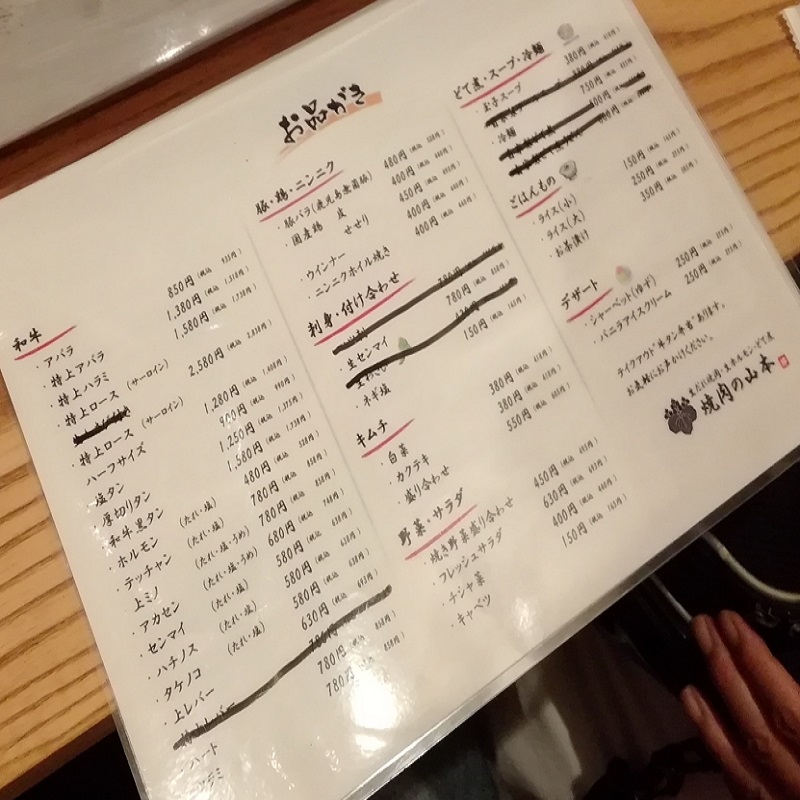 お品がき
和牛
・アバラ 850円(税込 935円)
・特上アバラ 1,380円(税込 1,518円)
・特上ハラミ 1,580円(税込 1,738円)
・特上ロース (サーロイン) 2,580円(税込 2,838円)
・特上ロース (サーロイン)
ハーフサイズ 1,280円(税込 1,408円)
・塩タン 900円
・厚切りタン 1,250円(税込 1,375円)
・和牛黒タン 1,580円(税込 1,738円)
・ホルモン (たれ・塩) 480円(税込 528円)
・テッチャン (たれ・塩) 780円(税込 858円)
・上ミノ (たれ・塩・うめ) 780円(税込 858円)
・アカセン (たれ・塩) 680円(税込 748円)
・センマイ (たれ・塩・うめ) 580円(税込 638円)
・ハチノス (たれ・塩) 580円(税込 638円)
・タケノコ (たれ・塩) 580円(税込 638円)
・上レバー 630円(税込 693円)
ハート 780円(税込 858円)
780円(税込 858円)
豚・鶏・ニンニク
・豚バラ(鹿児島産茶美豚) 480円(税込 528円)
・国産鶏 皮 400円(税込 440円)
せせり 450円(税込 495円)
・ウインナー 400円(税込 440円)
・ニンニクホイル焼き 400円(税込 440円)
刺身・付け合わせ
・生センマイ 780円(税込 858円)
・ネギ塩 150円(税込 165円)
キムチ
・白菜 380円(税込 418円)
・カクテキ 380円(税込 418円)
・盛り合わせ 550円(税込 605円)
野菜・サラダ
・焼き野菜盛り合わせ 450円(税込 495円)
・フレッシュサラダ 630円(税込 693円)
・チシャ菜 400円(税込 440円)
・キャベツ 150円(税込 165円)
どて煮・スープ・冷麺
・玉子スープ 380円(税込 418円)
・冷麺 750円
ごはんもの
・ライス(小) 150円(税込 165円)
・ライス(大) 250円(税込 275円)
・お茶漬け 350円(税込 385円)
デザート
・シャーベット(ゆず) 250円(税込 275円)
・バニラアイスクリーム 250円(税込 275円)
テイクアウト"牛タン弁当"あります。
お気軽にお声かけください。
生だれ焼肉・生ホルモン・どて煮
焼肉の山本